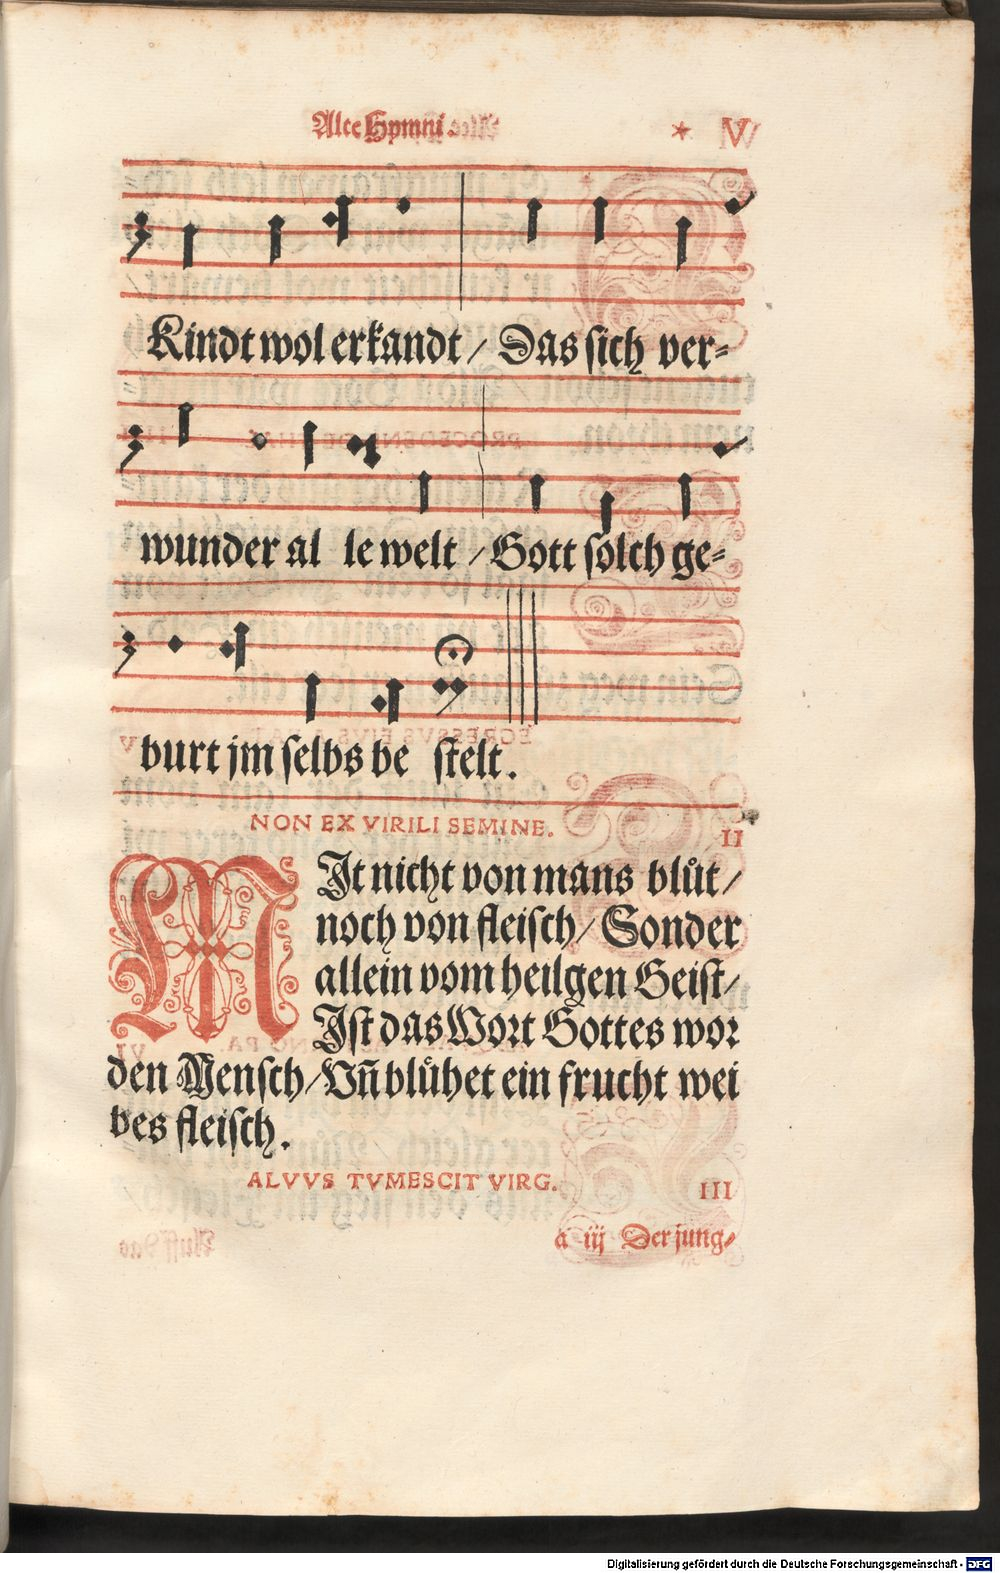 Alte Hymni.
* V
Kindt wol erkandt / Das sich ver⸗
wunder al le welt / Gott solch ge⸗
burt jm selbs be stelt.
NON EX VIRILI SEMINE.
II
MIt nicht von mans bluͦt /
noch von fleisch / Sonder
allein vom heilgen Geist /
Ist das Wort Gottes wor
den Mensch / Vñ bluͤhet ein frucht wei
bes fleisch.
ALVVS TVMESCIT VIRG.
III
a iij Der jung⸗
Digitalisierung gefördert durch die Deutsche Forschungsgemeinschaft - DFG